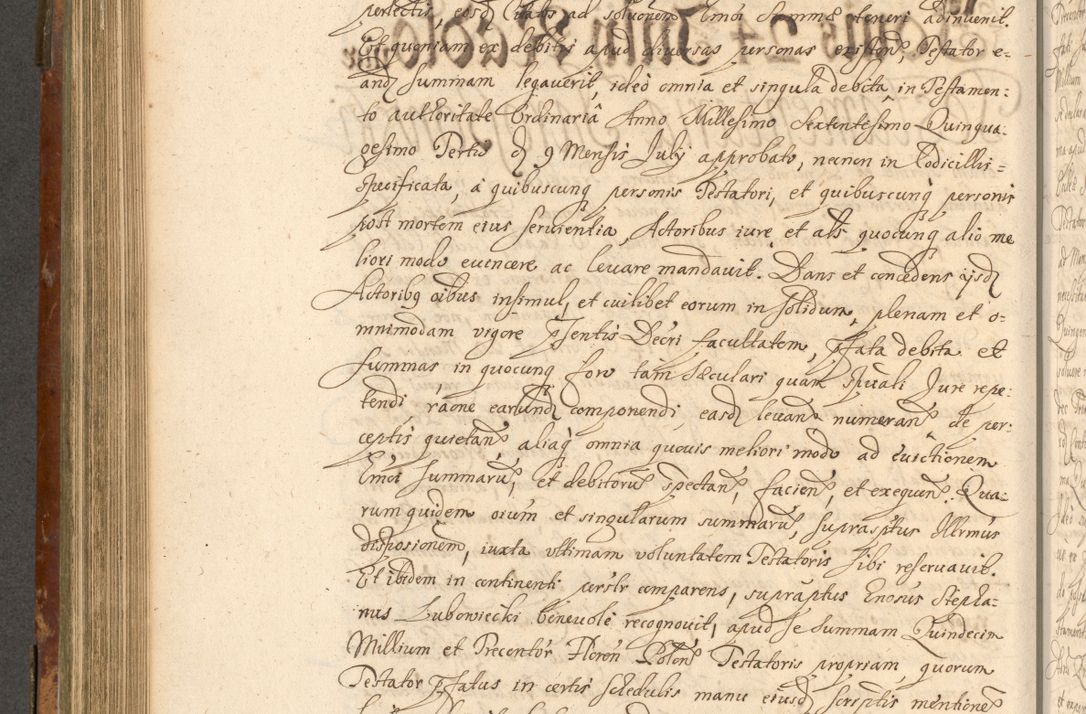 perlectis, eosd. itatos ad solvonem Emoi Summæ teneri adinvenit.
Et quoniam ex debitis apud diversas personas existen. Testator e-
and. summam legaverit, ideo omnia et singula debita in Testamen-
to authoritate Ordinaria Anno Millesimo Sexcentesimo Quinqua-
gesimo Tertio d. 9 Mensis July approbato, necnon in Codicillis=
specificata, a quibuscunq personis Testatori, et quibuscunq personis
post mortem eius servientia, Actoribus iure et als quocunq alio me
liori modo evincere ac levare mandavit. Dans et concedens ijsd.
Actorib9 oibus insimul, et cuilibet eorum in solidum, plenam et o-
mnimodam vigore pntis Decri facultatem, pfata debita et
summas in quocunq foro tam sæculari quam spuali Jure repe-
tendi, raone earund. componendi, easd. levan. numeran. de per-
ceptis quietan. aliaq omnia quovis meliori modo ad evictionem
Emoi summaru, et debitoru spectan, facien, et exequen. Qua-
rum quidem oium et singularum summaru, supraspitus Illrmus
disposionem, iuxta ultimam voluntatem Testatoris sibi reservavit.
Et ibidem in continenti perslr comparens, supraptus Enosus Stepha-
nus Lubowiecki benevole recognovit, apud se summam Quindecim
Millium et Trecentor Floren Polon Testatoris propriam, quorum
Testator pfatus in certis schedulis manu eiusd. scriptis mentione